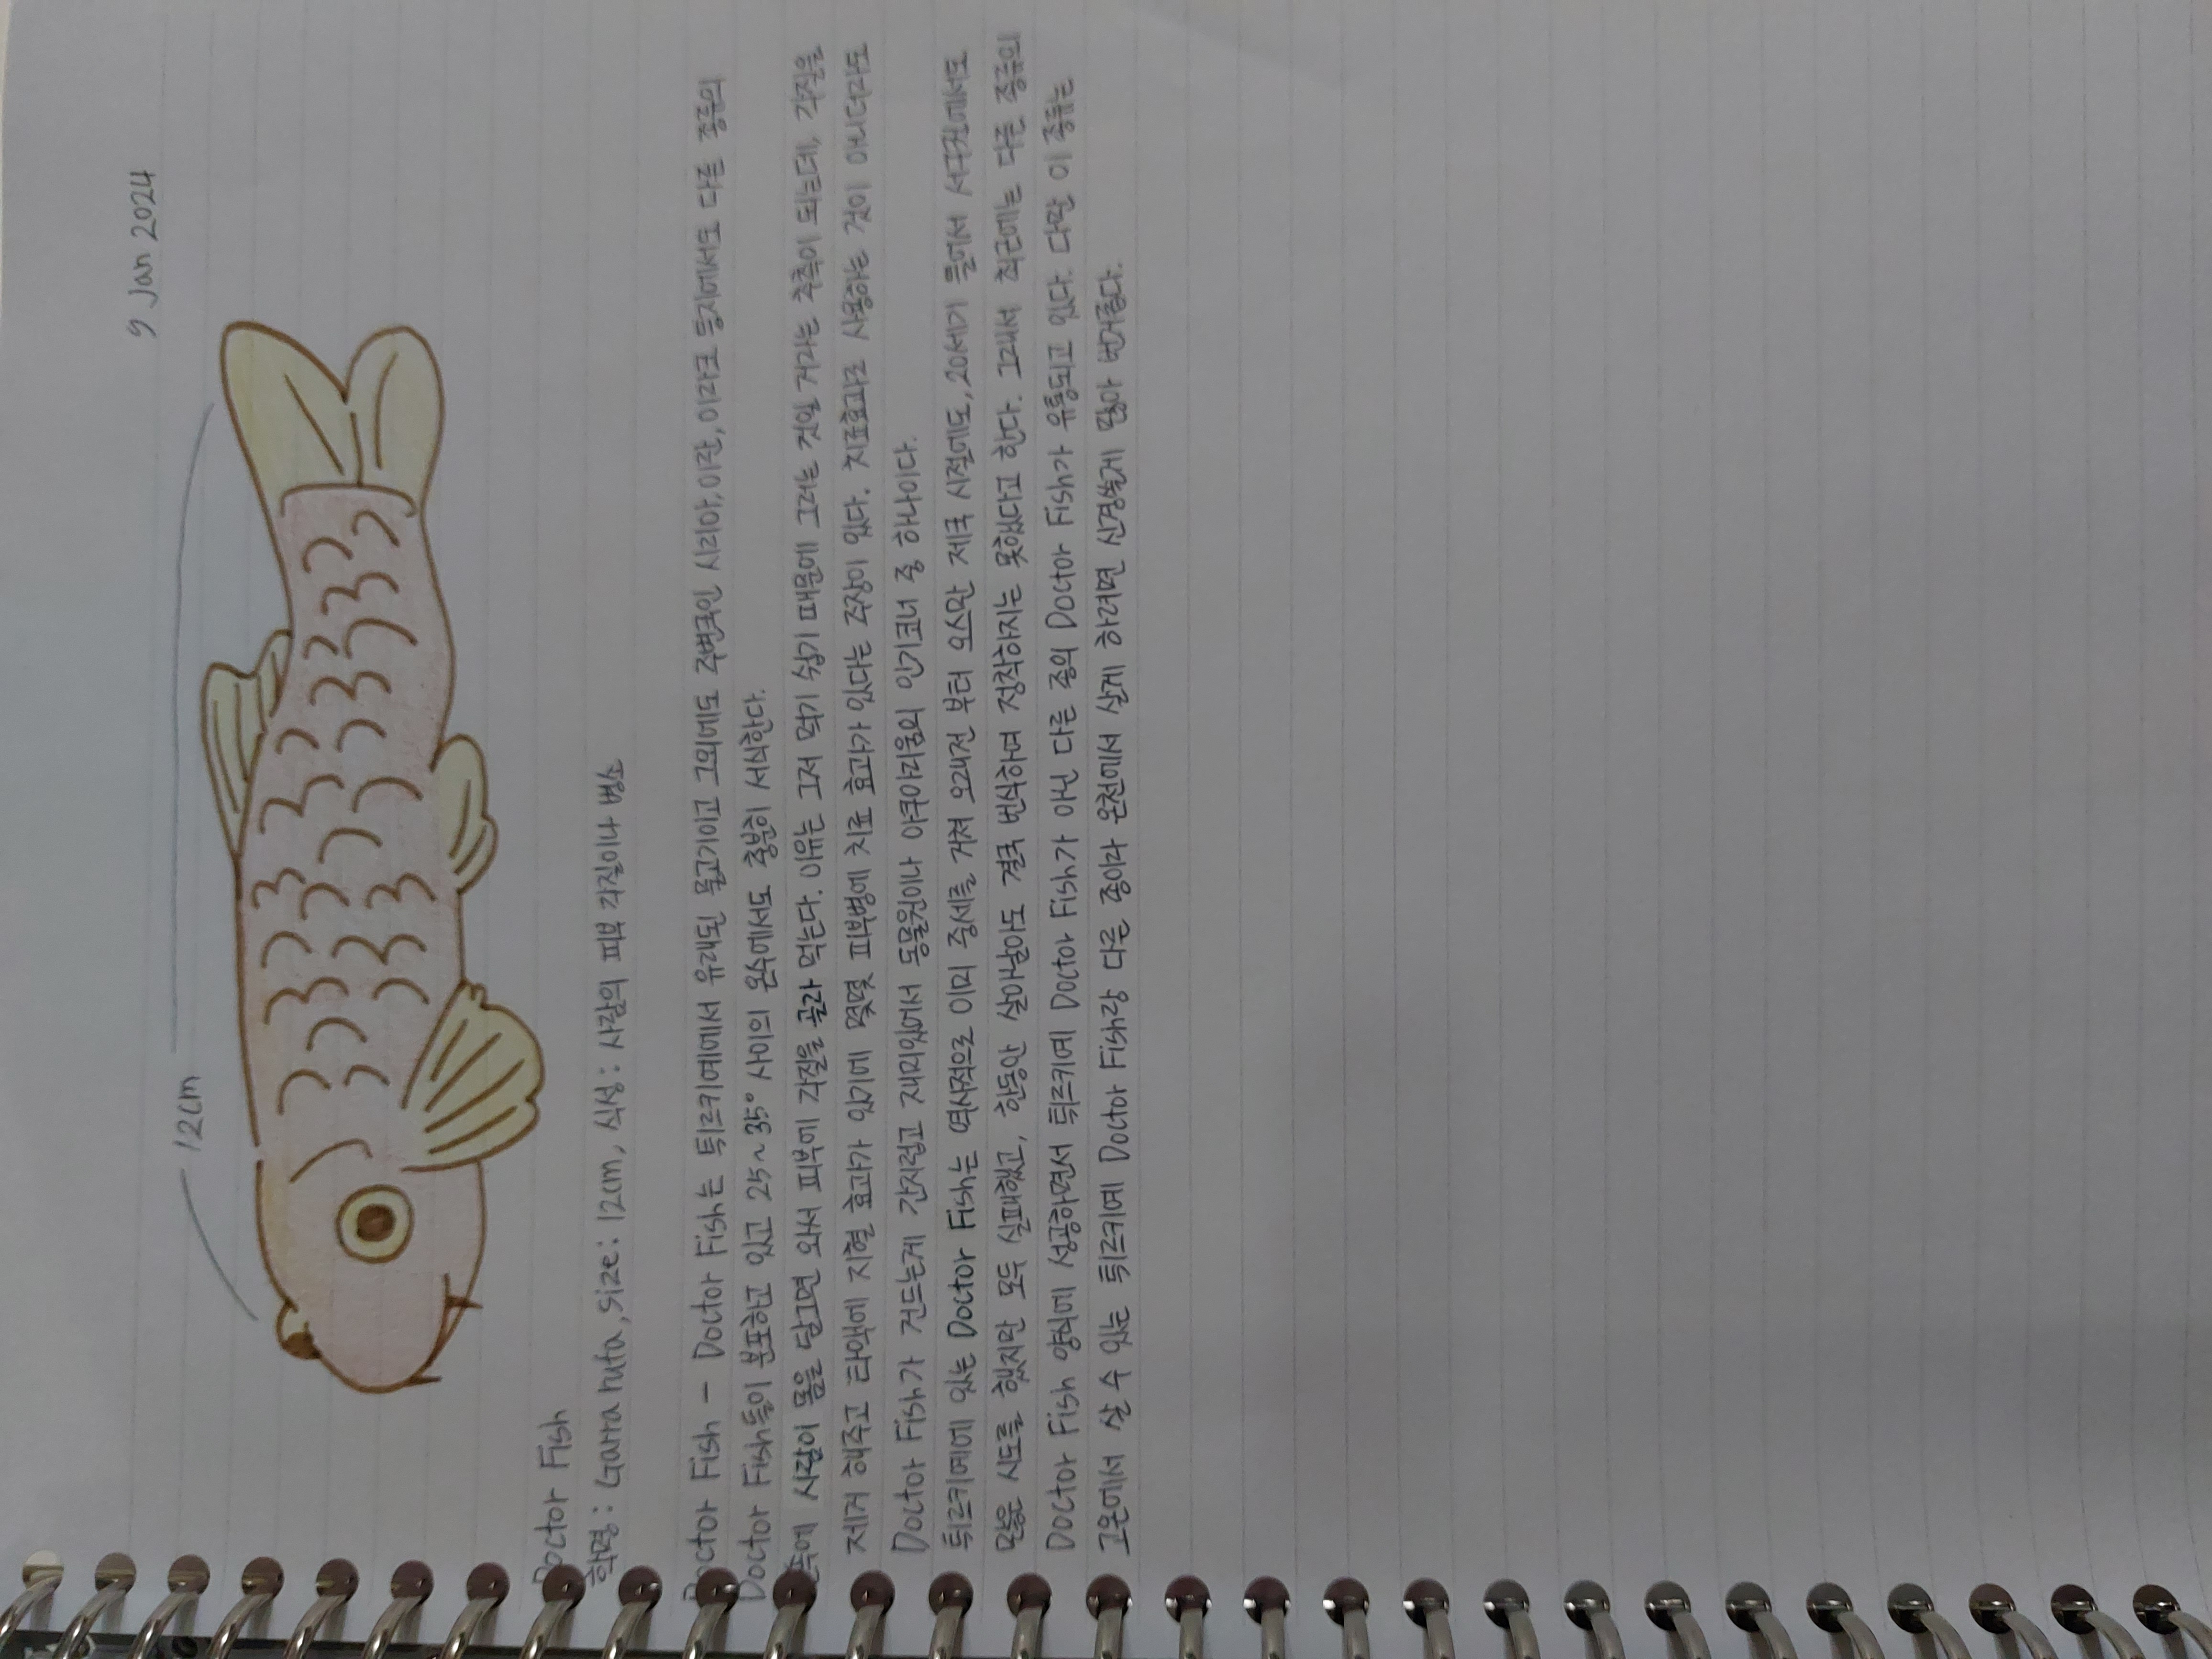 9 Jan 2024
12cm
Doctor Fish
학명: Garra rufa, size: 12cm, 식성: 사람의 피부 각질이나 병소
Doctor Fish - Doctor Fish는 튀르키예에서 유래된 물고기이고 그외에도 주변국인 시리아, 이란, 이라크 등지에서도 다른 종류의
Doctor Fish들이 분포하고 있고 25~35° 사이의 온수에서도 충분히 서식한다.
물속에 사람이 몸을 담그면 와서 피부에 각질을 골라 먹는다. 이유는 그저 먹기 쉽기 때문에 그러는 것일 거라는 추측이 되는데, 각질을
제거 해주고 타액에 지혈 효과가 있기에 몇몇 피부병에 치료 효과가 있다는 주장이 있다. 치료효과로 사용하는 것이 아니더라도
Doctor Fish가 건드는게 간지럽고 재미있어서 동물원이나 아쿠아리움의 인기코너 중 하나이다.
튀르키예에 있는 Doctor Fish는 역사적으로 이미 중세를 거쳐 오래전 부터 오스만 제국 시절에도, 20세기 들어서 서구권에서도
많은 시도를 했지만 모두 실패했고, 한동안 살아남아도 결국 번식하여 정착하지는 못했다고 한다. 그래서 최근에는 다른 종류의
Doctor Fish 양식에 성공하면서 튀르키예 Doctor Fish가 아닌 다른 종의 Doctor Fish가 유통되고 있다. 다만 이 종류는
고온에서 살 수 있는 튀르키예 Doctor Fish랑 다른 종이라 온천에서 살게 하려면 신경쓸게 많아 번거롭다.